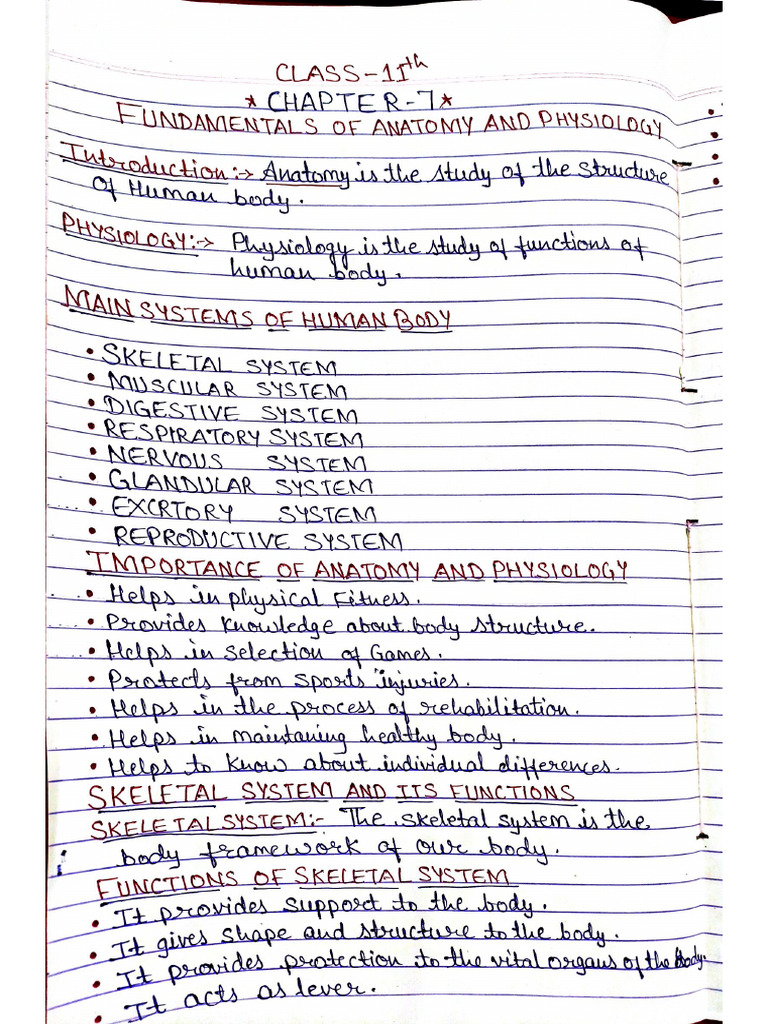 CLASS-11th
* CHAPTER-7 *
FUNDAMENTALS OF ANATOMY AND PHYSIOLOGY
Introduction:→ Anatomy is the study of the structure
of Human body.
PHYSIOLOGY:→ Physiology is the study of functions of
human body.
MAIN SYSTEMS OF HUMAN BODY
• SKELETAL SYSTEM
• MUSCULAR SYSTEM
• DIGESTIVE SYSTEM
• RESPIRATORY SYSTEM
• NERVOUS SYSTEM
• GLANDULAR SYSTEM
• EXCRTORY SYSTEM
• REPRODUCTIVE SYSTEM
IMPORTANCE OF ANATOMY AND PHYSIOLOGY
• Helps in physical Fitness.
• Provides knowledge about body structure.
• Helps in selection of Games.
• Protects from sports injuries.
• Helps in the process of rehabilitation.
• Helps in maintaning healthy body.
• Helps to know about individual differences.
SKELETAL SYSTEM AND ITS FUNCTIONS
SKELETAL SYSTEM:- The skeletal system is the
body framework of our body.
FUNCTIONS OF SKELETAL SYSTEM
• It provides support to the body.
• It gives shape and structure to the body.
• It provides protection to the vital organs of the body.
• It acts as lever.